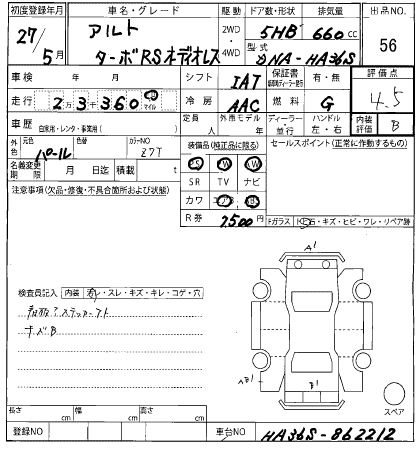 初度登録年月 車名・グレード 駆動 ドア数・形状 排気量 出品NO.
27/5月 アルト ターボRSオーディオレス 2WD・4WD 5HB 660cc 56
型式 DNA-HA36S
車検 年 月 シフト IAT 保証書 有・無 評価点 4.5
走行 23360 km マイル 冷房 AAC 燃料 G
車歴 自家用・レンタ・事業用( ) 定員 人 外車モデル 年 ディーラー・並行 ハンドル 左・右 内装評価 B
外色 元色 パール 色替 カラーNO Z7T
装備品(純正品に限る) セールスポイント(正常に作動するもの)
名義変更期限 月 日迄 積載 t
PS PW AW
SR TV ナビ
カワ エアB ABS
R券 7,500円
注意事項(欠品・修復・不具合箇所および状態)
Fガラス 石・キズ・ヒビ・ワレ・リペア跡
検査員記入 内装 汚・スレ・キズ・キレ・コゲ・穴
キズB
A1
AB1
B1
スペア
長さ cm 幅 cm 高さ cm
登録NO 車台NO HA36S-862212